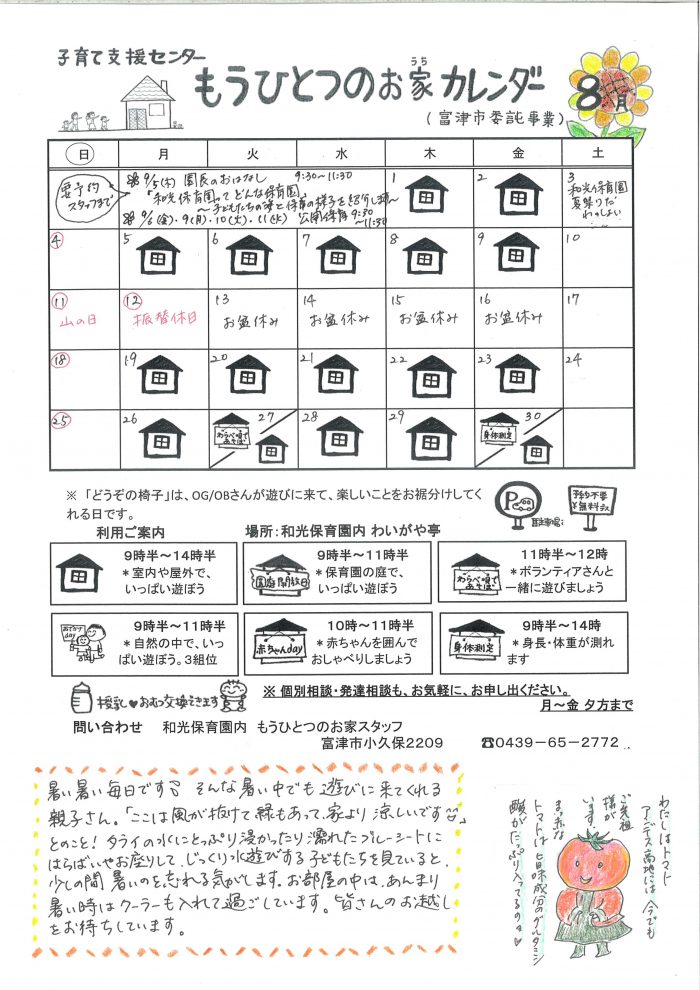 子育て支援センター
もうひとつのお家カレンダー
うち
8月
(富津市委託事業)
日 月 火 水 木 金 土
要予約
スタッフまで
9/5(木) 園長のおはなし 9:30~11:30
「和光保育園ってどんな保育園」
~子どもたちの姿と保育の様子を紹介し
9/6(金)・9(月)・10(火)・11(水) 公開保育 9:30
~11:30
1 2 3
和光保育園
夏祭りだ
わっしょい
4 5 6 7 8 9 10
11 12 13 14 15 16 17
山の日 振替休日 お盆休み お盆休み お盆休み お盆休み
18 19 20 21 22 23 24
25 26 27 28 29 30
わらべ唄であそぼ
身体測定
※「どうぞの椅子」は、OG/OBさんが遊びに来て、楽しいことをお裾分けしてく
れる日です。
P
駐車場:
予約不要
¥無料デス
利用ご案内 場所:和光保育園内 わいがや亭
9時半~14時半
*室内や屋外で、
いっぱい遊ぼう
園庭開放日
9時半~11時半
*保育園の庭で、
いっぱい遊ぼう
わらべ唄であそぼ
11時半~12時
*ボランティアさんと
一緒に遊びましょう
おでかけday
9時半~11時半
*自然の中で、いっ
ぱい遊ぼう。3組位
赤ちゃんday
10時~11時半
*赤ちゃんを囲んで
おしゃべりしましょう
身体測定
9時半~14時
*身長・体重が測れ
ます
授乳♥おむつ交換できます
※ 個別相談・発達相談も、お気軽に、お申し出ください。
月~金 夕方まで
問い合わせ 和光保育園内 もうひとつのお家スタッフ
富津市小久保2209 ☎0439-65-2772
暑い暑い毎日です。そんな暑い中でも遊びに来てくれる
親子さん。「ここは風が抜けて緑もあって、家より涼しいです」
とのこと!タライの水にとっぷり浸かったり濡れたブルーシートに
はらばいやお座りして、じっくり水遊びする子どもたちを見ていると、
少しの間暑いのを忘れる気がします。お部屋の中は、あんまり
暑い時はクーラーも入れて過ごしています。皆さんのお越し
をお待ちしています。
わたしはトマト
アンデス高地には今でも
ご先祖
様が
います。
まっ赤な
トマトは旨味成分のグルタミン
酸がたっぷり入ってるのよ♥